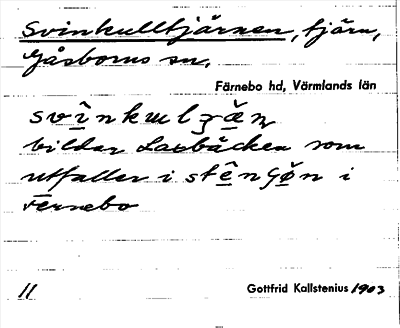 Svinkulltjärnen, tjärn,
Gåsborns sn.
Färnebo hd, Värmlands län
bildar Laxbäcken som
utfaller i i
Fernebo
11 Gottfrid Kallstenius 1903